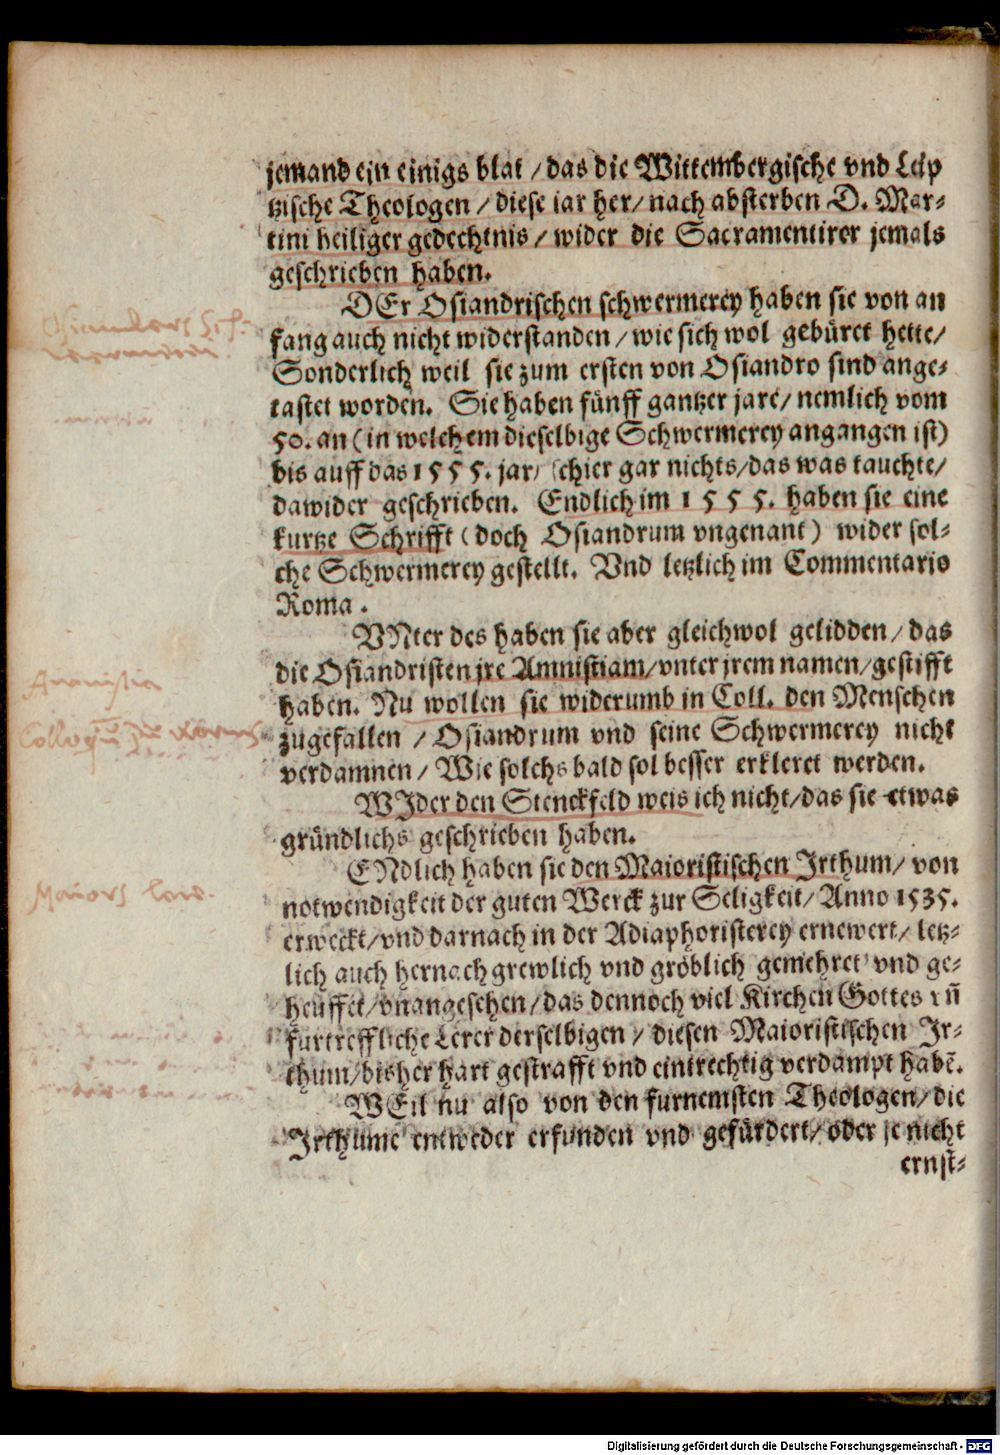 jemand ein einigs blat / das die Wittembergische vnd Leip
tzische Theologen / diese iar her / nach absterben D. Mar-
tini heiliger gedechtnis / wider die Sacramentirer jemals
geschrieben haben.
DEr Osiandrischen schwermerey haben sie von an
fang auch nicht widerstanden / wie sich wol gebüret hette /
Sonderlich weil sie zum ersten von Osiandro sind ange-
tastet worden. Sie haben fünff gantzer jare / nemlich vom
50. an (in welchem dieselbige Schwermerey angangen ist)
bis auff das 1555. jar / schier gar nichts / das was tauchte /
dawider geschrieben. Endlich im 1555. haben sie eine
kurtze Schrifft (doch Osiandrum vngenant) wider sol-
che Schwermerey gestellt. Vnd letzlich im Commentario
Roma.
VNter des haben sie aber gleichwol gelidden / das
die Osiandristen jre Amnistiam / vnter jrem namen / gestifft
haben. Nu wollen sie widerumb in Coll. den Menschen
zugefallen / Osiandrum vnd seine Schwermerey nicht
verdamnen / Wie solchs bald sol besser erkleret werden.
WJder den Stenckfeld weis ich nicht / das sie etwas
gründlichs geschrieben haben.
ENdlich haben sie den Maioristischen Jrthum / von
notwendigkeit der guten Werck zur Seligkeit / Anno 1535.
erweckt / vnd darnach in der Adiaphoristerey ernewert / letz-
lich auch hernach grewlich vnd gröblich gemehret vnd ge-
heuffet / vnangesehen / das dennoch viel Kirchen Gottes vñ
fürtreffliche Lerer derselbigen / diesen Maioristischen Jr-
thum / bisher hart gestrafft vnd eintrechtig verdampt habẽ.
WEil nu also von den furnemsten Theologen / die
Jrthume entweder erfunden vnd gefürdert / oder je nicht
ernst-
Amnistia
Maiors
Digitalisierung gefördert durch die Deutsche Forschungsgemeinschaft - DFG